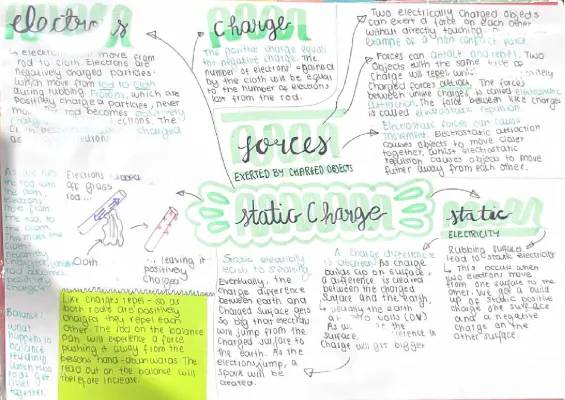 electro s
electrons move from
rod to cloth. Electrons are
negatively charged particles.
which move from rod to cloth
during rubbing. Protons, which are
positively charge particles, never
rod becomes positively
Charge
The positive charge equals
the negative charge. The
number of electrons gained
by the cloth will be equal
to the number of electrons
lost from the rod.
Two electrically charged objects
can exert a force on each other
without directly touching
Example of a non contact force.
Forces can attract and repel. Two
Objects with the same type of
Charge will repel
Charged forces attract. The forces
between unlike charges is called
attraction. The force between like charges
is called electrostatic repulsion
Electrostatic forces can cause
movement. Electrostatic attraction
causes objects to move closer
together, whilst electrostatic
repulsion causes objects to move
further away from each other.
forces
EXERTED BY CHARGED OBJECTS
static Charge
static
ELECTRICITY
Rubbing surfaces
lead to static electricity
↳ This occurs when
two electrons move
from one surface to the
other. We get a build
up of static positive
charge one surface
and a negative
charge on the
other surface.
the rod with
the cloth,
electrons
from the
rod, to
Electrons
off glass
rod ...
Cloth
... leaving it
positively
Charged
Balance:
what
happens to
balance
reading
Like charges repel - so as
both rods are positively
charged they repel each
other. The rod on the balance
pan will experience a force
pushing it away from the
persons hand - downwards. The
read out on the balance will
therefore increase.
Static electricity
leads to sparking
Eventually, the
Charge difference
between earth and
Charged Surface gets
so big that electrons
will jump from the
Charged surface to
the earth. As the
electrons jump, a
spark will be
created.
A Charge difference
is created. As charge
builds up on surface,
a difference is created
between the charged
Surface and the earth,
usually the earth
at zero volts (0V)
surface,
Charge will get bigger